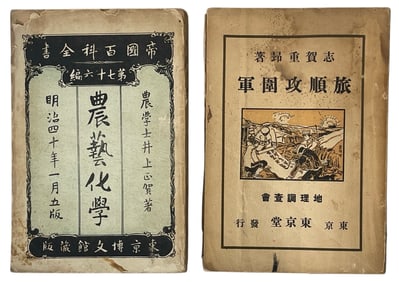 帝國百科全書
第七十六編
農學士井上正賀著
農藝化學
明治四十年一月五版
東京博文館蔵版
志賀重昻著
旅順攻圍軍
地理調査會
東京 東京堂 發行